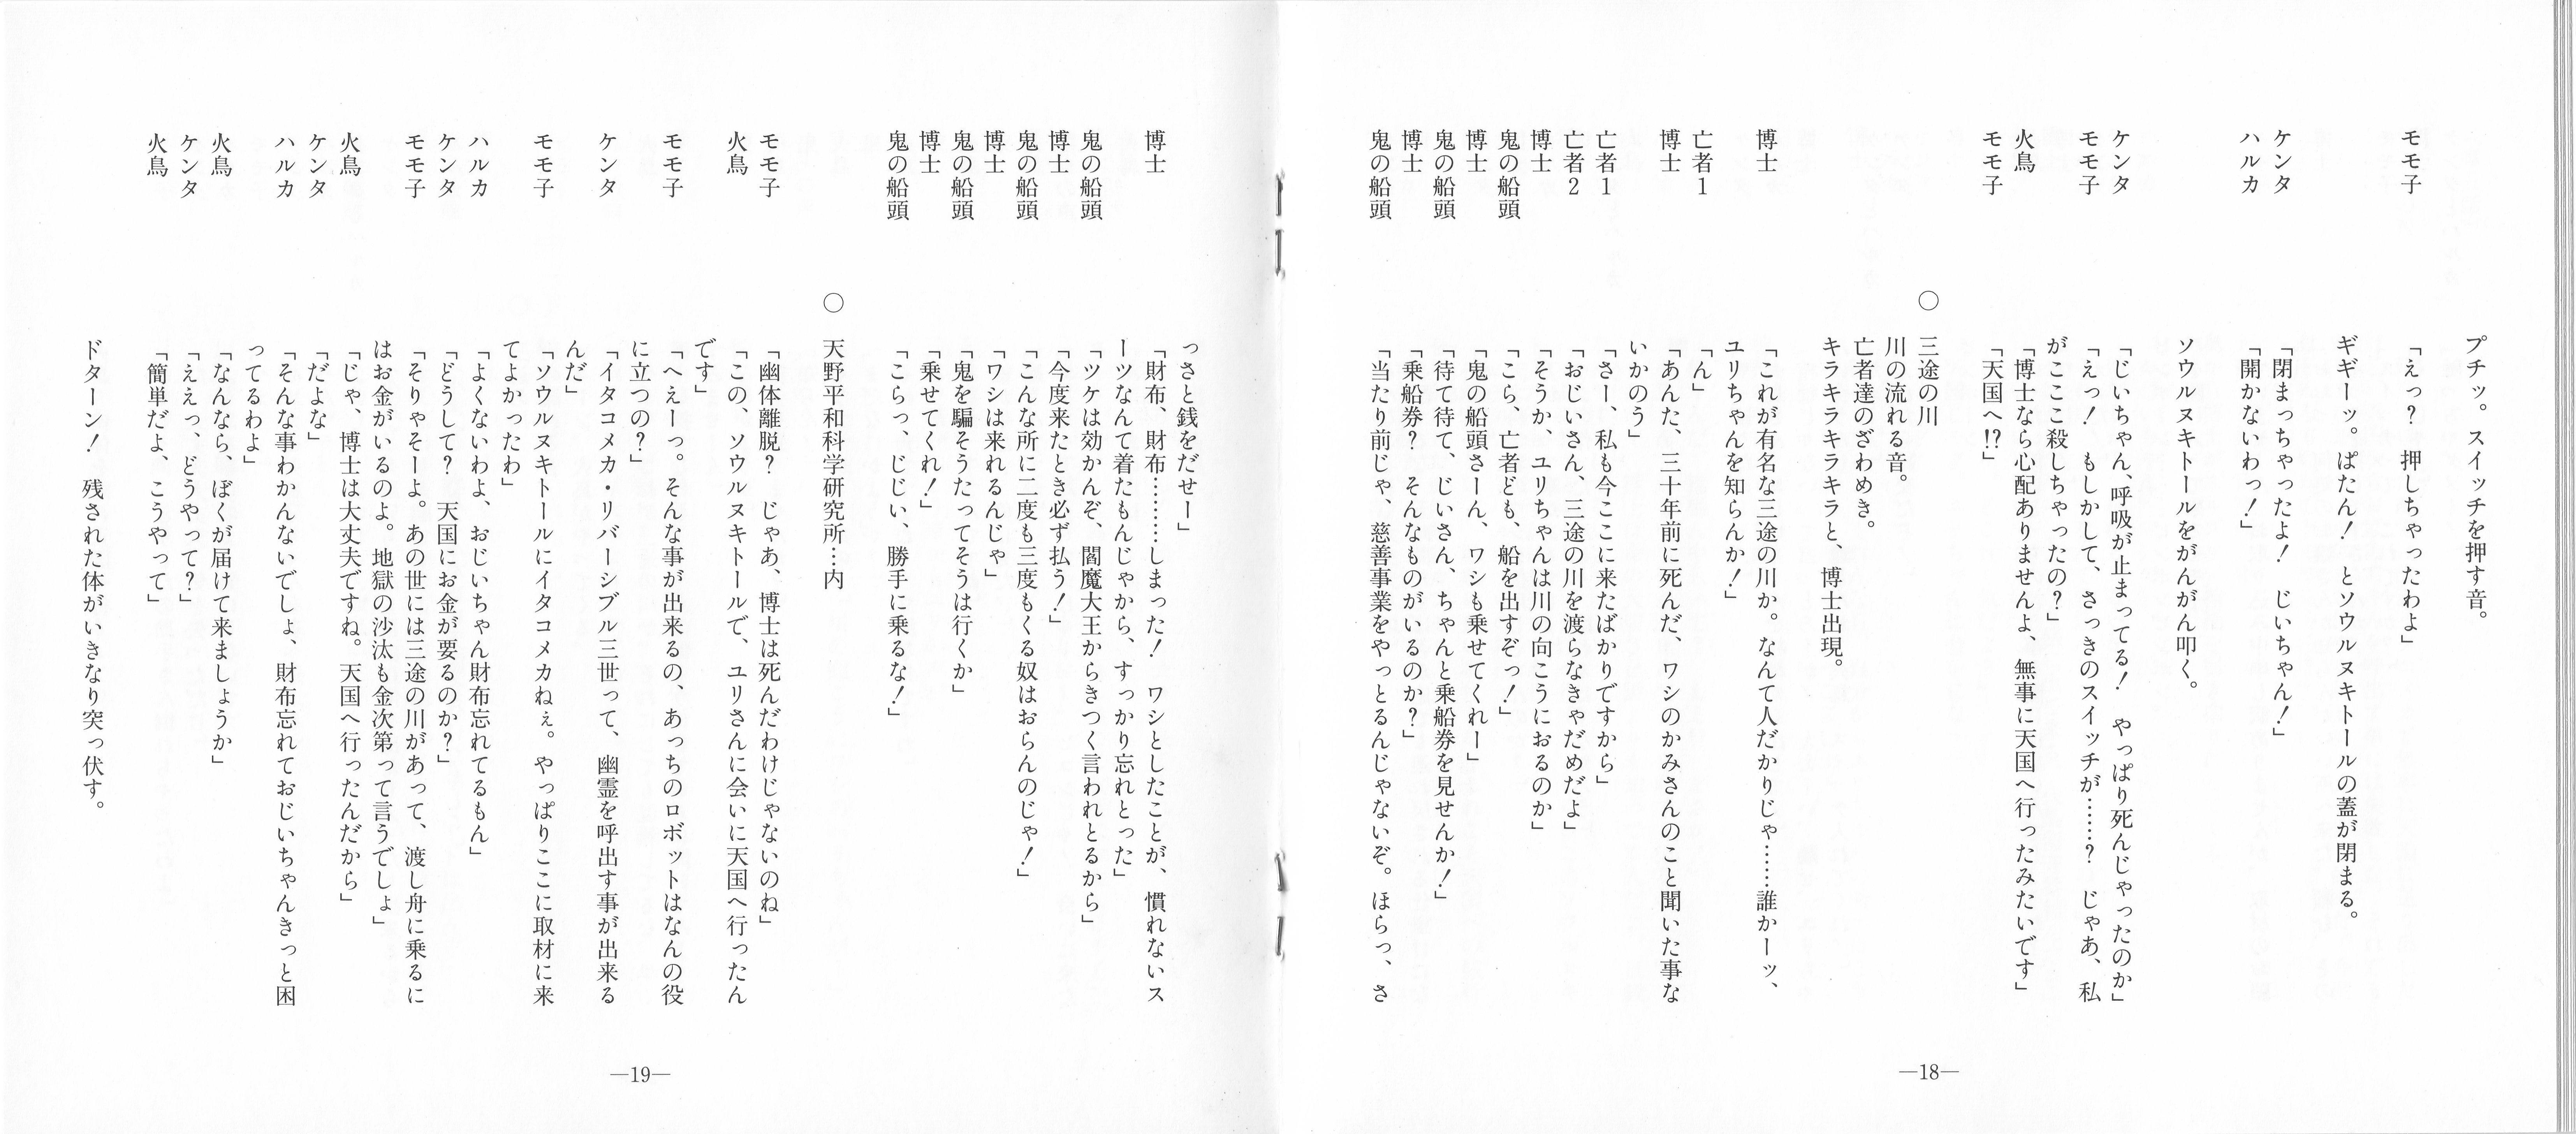 プチッ。スイッチを押す音。
モモ子　「えっ？　押しちゃったわよ」
ギギーッ。ぱたん！　とソウルヌキトールの蓋が閉まる。
ケンタ　「閉まっちゃったよ！　じいちゃん！」
ハルカ　「開かないわっ！」
ソウルヌキトールをがんがん叩く。
ケンタ　「じいちゃん、呼吸が止まってる！　やっぱり死んじゃったのか」
モモ子　「えっ！　もしかして、さっきのスイッチが……？　じゃあ、私
がここ殺しちゃったの？」
火鳥　「博士なら心配ありませんよ、無事に天国へ行ったみたいです」
モモ子　「天国へ!?」
○　三途の川
川の流れる音。
亡者達のざわめき。
キラキラキラキラと、博士出現。
博士　「これが有名な三途の川か。なんて人だかりじゃ……誰かーッ、
ユリちゃんを知らんか！」
亡者1　「ん」
博士　「あんた、三十年前に死んだ、ワシのかみさんのこと聞いた事な
いかのう」
亡者1　「さー、私も今ここに来たばかりですから」
亡者2　「おじいさん、三途の川を渡らなきゃだめだよ」
博士　「そうか、ユリちゃんは川の向こうにおるのか」
鬼の船頭　「こら、亡者ども、船を出すぞっ！」
博士　「鬼の船頭さーん、ワシも乗せてくれー」
鬼の船頭　「待て待て、じいさん、ちゃんと乗船券を見せんか！」
博士　「乗船券？　そんなものがいるのか？」
鬼の船頭　「当たり前じゃ、慈善事業をやっとるんじゃないぞ。ほらっ、さ
—18—
っさと銭をだせー」
博士　「財布、財布………しまった！　ワシとしたことが、慣れないス
ーツなんて着たもんじゃから、すっかり忘れとった」
鬼の船頭　「ツケは効かんぞ、閻魔大王からきつく言われとるから」
博士　「今度来たとき必ず払う！」
鬼の船頭　「こんな所に二度も三度もくる奴はおらんのじゃ！」
博士　「ワシは来れるんじゃ」
鬼の船頭　「鬼を騙そうたってそうは行くか」
博士　「乗せてくれ！」
鬼の船頭　「こらっ、じじい、勝手に乗るな！」
○　天野平和科学研究所…内
モモ子　「幽体離脱？　じゃあ、博士は死んだわけじゃないのね」
火鳥　「この、ソウルヌキトールで、ユリさんに会いに天国へ行ったん
です」
モモ子　「へえーっ。そんな事が出来るの、あっちのロボットはなんの役
に立つの？」
ケンタ　「イタコメカ・リバーシブル三世って、幽霊を呼出す事が出来る
んだ」
モモ子　「ソウルヌキトールにイタコメカねぇ。やっぱりここに取材に来
てよかったわ」
ハルカ　「よくないわよ、おじいちゃん財布忘れてるもん」
ケンタ　「どうして？　天国にお金が要るのか？」
モモ子　「そりゃそーよ。あの世には三途の川があって、渡し舟に乗るに
はお金がいるのよ。地獄の沙汰も金次第って言うでしょ」
火鳥　「じゃ、博士は大丈夫ですね。天国へ行ったんだから」
ケンタ　「だよな」
ハルカ　「そんな事わかんないでしょ、財布忘れておじいちゃんきっと困
ってるわよ」
火鳥　「なんなら、ぼくが届けて来ましょうか」
ケンタ　「ええっ、どうやって？」
火鳥　「簡単だよ、こうやって」
ドターン！　残された体がいきなり突っ伏す。
—19—